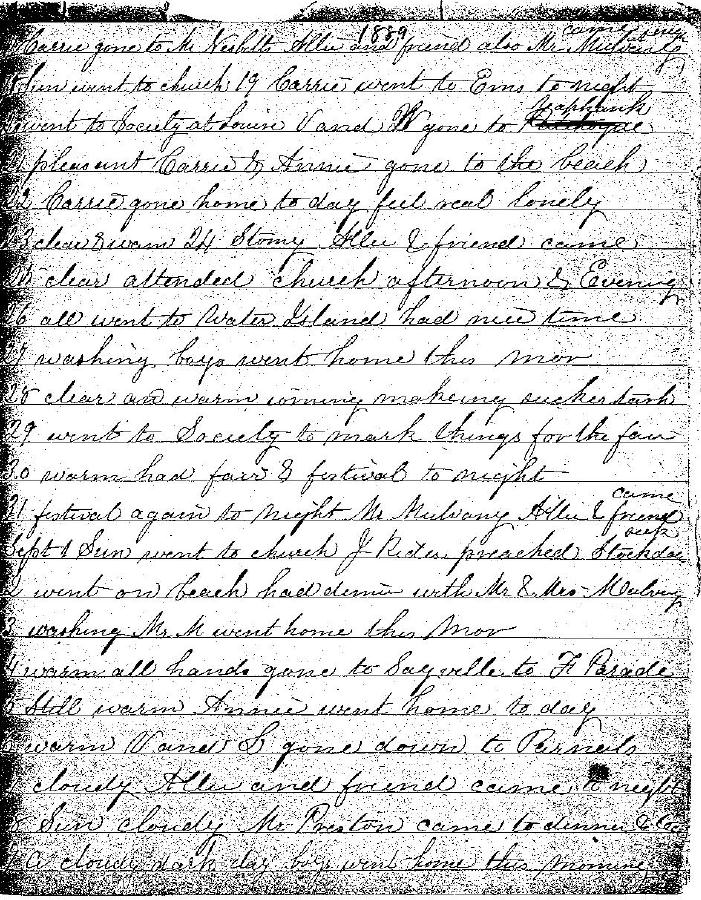 1889
Carrie gone to Mr Nesbitts Allie and friend also Mr Mulvany came
18 Sun went to church 19 Carrie went to Ems to night
went to Society at Louise V and W gone to Yaphank
21 pleasant Carrie & Annie gone to the beach
22 Carrie gone home to day feel real lonely
23 clear & warm 24 Stomy Allie & friend came
25 clear attended church afternoon & Evening
26 all went to Water Island had nice time
27 washing boys went home this mor
28 clear and warm ironing makeing
29 went to Society to mark things for the fair
30 warm had fair & festival to night
31 festival again to night Mr Mulvany Allie & friend came
Sept 1 Sun went to church J Rides preached
2 went on beach had dinner with Mr & Mrs Mulvany
3 washing Mr M went home this Mor
4 warm all hands gone to Sayville to F Parade
5 Still warm Annie went home to day
6 warm V and L gone down to
7 cloudy Allie and friend came to night
8 Sun cloudy Mr Preston came to dinner &
9 a cloudy dark day boys went home this morning